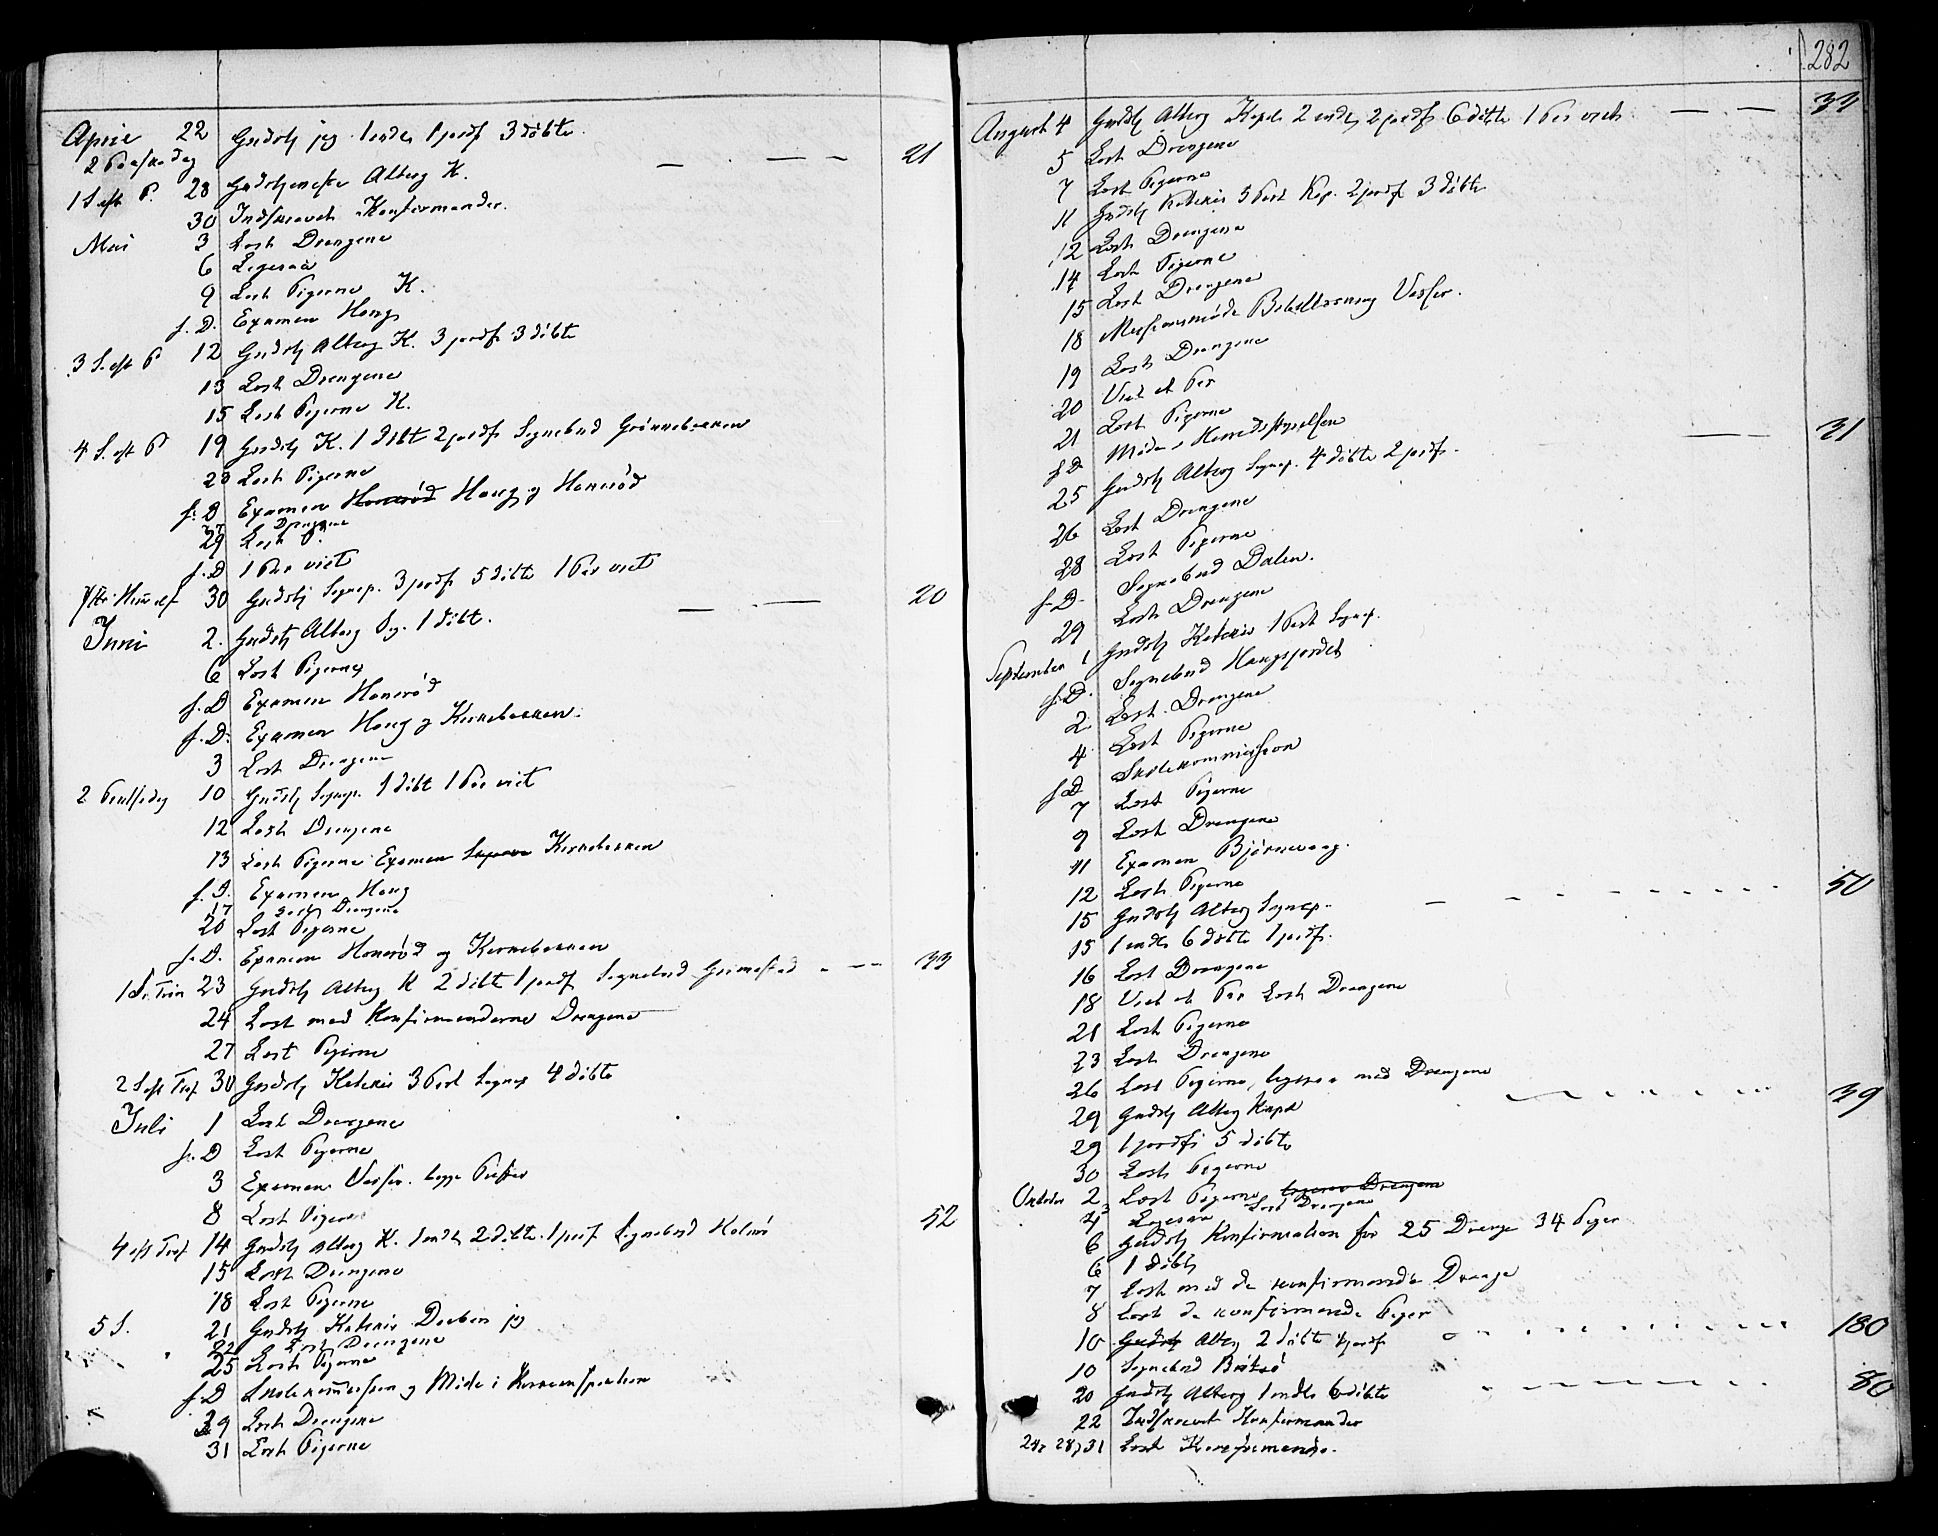 April 22 Gudstj jeg 1 indl. 1 jordf 3 døbte
2 Paaskedag — — — 21
1 S. eft P. 28 Gudstjeneste Alterg K.
30 Indskrevet Konfirmander.
Mai 3 Læst Drengene
6 Ligesaa
9 Læst Pigerne K.
s. D. Examen Haug
3 S. eft P 12 Gudstj Alterg K. 3 jordf. 3 døbte
13 Læst Drengene
15 Læst Pigerne K.
4 S. eft P 19 Gudstj K. 1 døbt 2 jordf Sognebud Grønnebakken
23 Læst Pigerne
s. D Examen Hanerød Haug og Hanerød
27 Drengene
29 Læst P.
s. D 1 Par viet
Kr. Himelf 30 Gudstj Sognep. 3 jordf 5 døbte 1 Par viet
— — — 20
Juni 2. Gudstj Alterg Sg. 1 døbt.
6 Læst Pigerne
s. D Examen Hanerød
s. D. Examen Haug og Kirkebakken.
3 Læst Drengene
2 Pintsedag 10 Gudstj Sognep. 1 døbt 1 Par viet
12 Læst Drengene
13 Læst Pigerne Examen Kirkebakken
s. D. Examen Haug
17 Læst Drengene
20 Læst Pigerne
s. D. Examen Hanerød og Kirkebakken
1 S. Trin 23 Gudstj Alterg K 2 døbt 1 jordf Sognebud Grimestad - — — 33
24 Læst med Konfirmanderne Drengene
27 Læst Pigerne
2 S eft Tref 30 Gudstj Kateket 3 Past Sognep 4 døbte
Juli 1 Læst Drengene
s. D Læst Pigerne
3 Examen Vasser. begge Præster
8 Læst Pigerne
4 eft Tref 14 Gudstj Alterg K. 1 indl. 2 døbte. 1 jordf Sognebud 52
15 Læst Drengene
18 Læst Pigerne
5 S. 21 Gudstj jeg
22 Læst Drengene
25 Læst Pigerne
s. D Skolekommission og Møde i
29 Læst Drengene
31 Læst Pigerne
282
August 4 Gudstj Alterg Kapel 2 indl, 2 jordf 6 døbte 1 Par viet — — 33
5 Læst Drengene
7 Læst Pigerne
11 Gudstj Kateket 5 Past Kap. 2 jordf 3 døbte
12 Læst Drengene
14 Læst Pigerne
15 Læst Drengene
18 Missionsmøde Bibellæsning Vasser.
19 Læst Drengene
20 Viet et Par
21 Læst Pigerne
s D Møde i Herredsstyrelsen
25 Gudstj Alterg Sognep. 4 døbte 2 jordf. — — 31
26 Læst Drengene
28 Læst Pigerne
s. D. Sognebud Dalen.
29 Læst Drengene
September 1 Gudstj Kateket 1 Past Sognep.
s. D. Sognebud Haugsjordet
2 Læst Drengene
4 Læst Pigerne
s D Skolekommission
7 Læst Pigerne
9 Læst Drengene
11 Examen Bjørnevaag.
12 Læst Pigerne
15 Gudstj Alterg Sognep. — — — 50
15 1 indl. 6 døbte 1 jordf.
16 Læst Drengene
18 Viet et Par Læst Drengene
21 Læst Pigerne
23 Læst Drengene
26 Læst Pigerne, ligesaa med Drengene
29 Gudstj Alterg Kapel — — — 39
29 1 jordf. 5 døbte
30 Læst Pigerne
Oktober 2 Læst Pigerne ligesaa Drengene
3 Læst Drengene
4 Ligesaa
6 Gudstj Konfirmation for 25 Drenge 34 Piger
6 1 døbt
7 Læst med de konfirmerede Drenge
8 Læst de konfirmerede Piger
10 Gudstj Alterg 2 døbte 4 jordf — — — 180
10 Sognebud
20 Gudstj Alterg 1 indl. 6 døbte — — — 80
22 Indskrevet Konfirmander
24, 28, 31 Læst